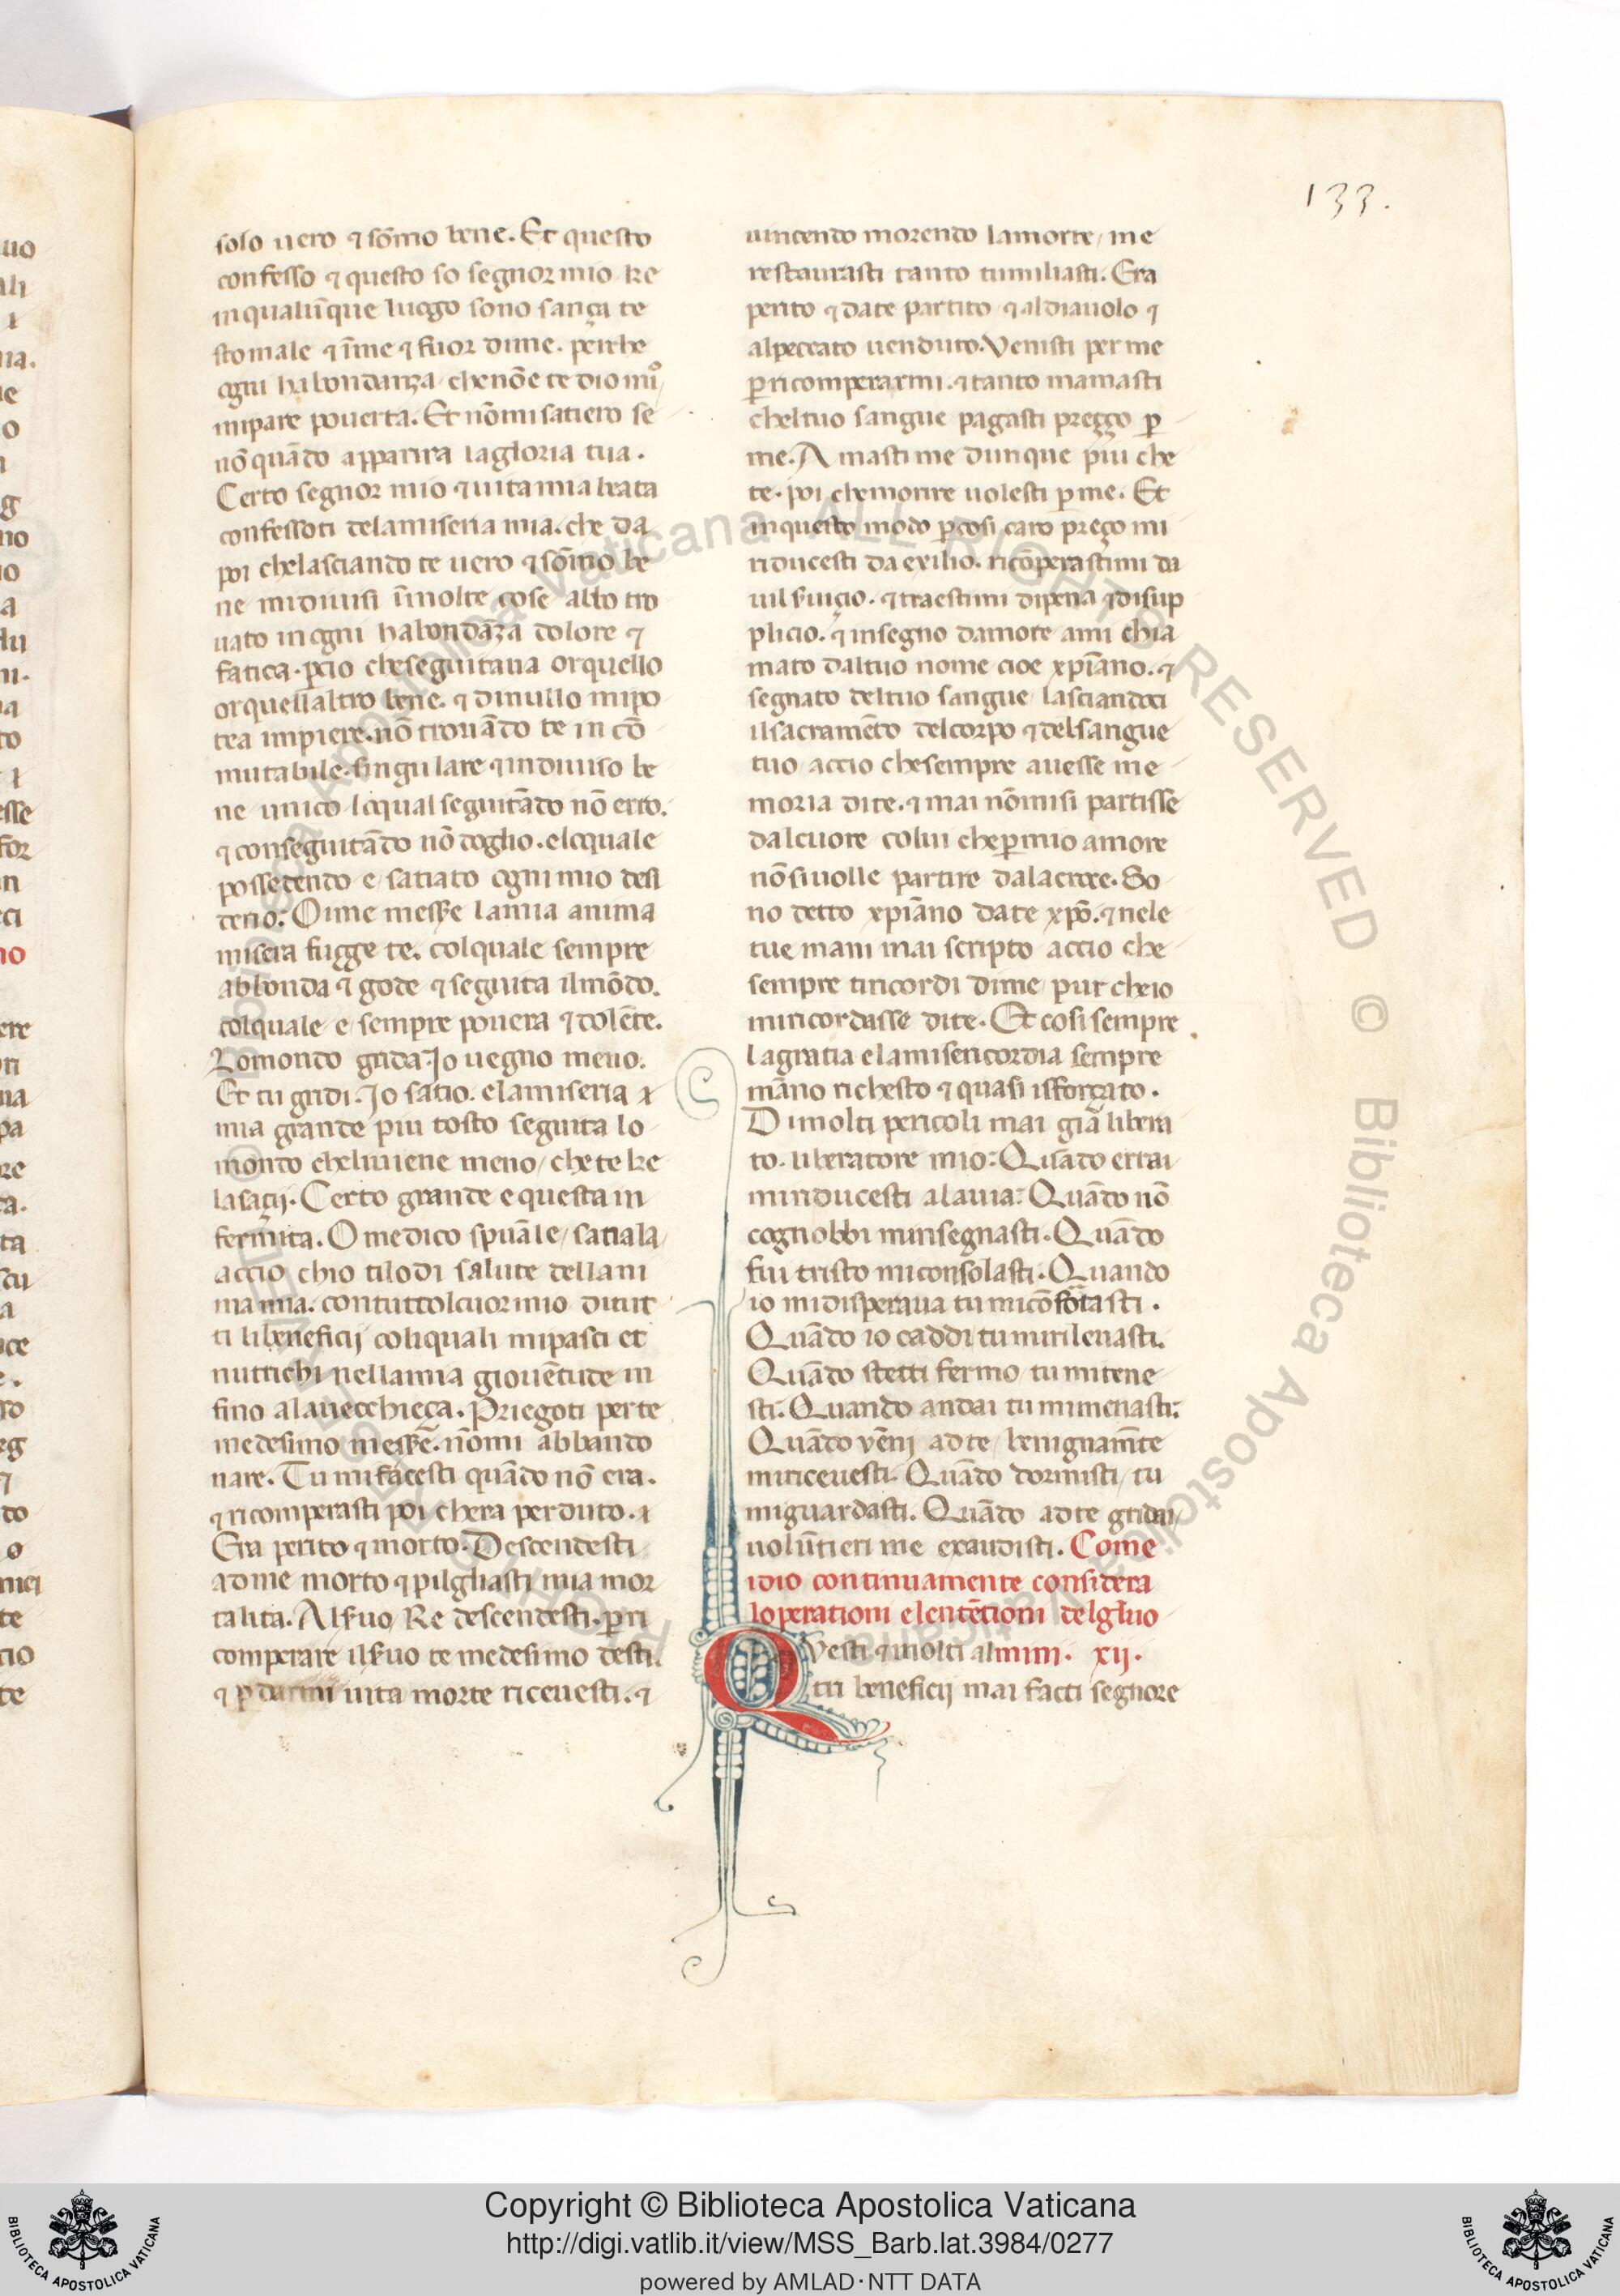 133.
solo uero ⁊ sōmo bene. Et questo
confesso ⁊ questo so segnor mio ke
inqualūque luogo sono sança te
sto male ⁊ īme ⁊ fuor dime. perche
ogni habondanza chenōe te dio mio
mipare pouerta. Et nōmi satiero se
nō quādo apparira lagloria tua.
Certo segnor mio ⁊ uita mia beata
confessoti delamiseria mia. che da
poi chelasciando te uero ⁊ sōmo be
ne midiuisi īmolte cose abbo tro
uato in ogni habondāza dolore ⁊
fatica. ꝑcio cheseguitaua orquello
orquellaltro bene. ⁊ dinullo mipo
tea impiere. nō trouādo te in cō
mutabile. singulare ⁊ indiuiso be
ne unico loqual seguitādo nō erro.
⁊ conseguitādo nō doglio. eloquale
possedendo e satiato ogni mio desi
derio. Oime messe lamia anima
misera fugge te. colquale sempre
abbonda ⁊ gode ⁊ seguita ilmōdo.
colquale e sempre pouera ⁊ dolēte.
Lomondo grida. Io uegno meno.
Et tu gridi. Io satio. elamiseria
mia grande piu tosto seguita lo
mondo chelimiene meno, che te ke
lasacij. Certo grande e questa in
fermita. O medico spūale, satiala
accio chio tilodi salute dellani
ma mia. contuttolcuor mio ditut
ti libeneficij coliquali mipasci et
nutrichi nellamia giouētude in
fino alauecchieça. Priegoti per te
medesimo messē. nōmi abbando
nare. Tu mi facesti quādo nō era.
⁊ ricomperasti poi chera perduto.
Era perito ⁊ morto. Descendesti
adme morto ⁊ pilgliasti mia mor
talita. Alseruo Re descendesti. ꝑ ri
comperare ilseruo te medesimo desti.
⁊ ꝑ darmi uita morte riceuesti. ⁊
uincendo morendo lamorte, me
restaurasti tanto tumiliasti. Era
perito ⁊ date partito ⁊ aldiauolo ⁊
alpeccato uenduto. Venisti per me
ꝑ ricomperarmi. ⁊ tanto mamasti
cheltuo sangue pagasti preggo ꝑ
me. Amasti me dunque piu che
te. poi chemorire uolesti ꝑ me. Et
inquesto modo ꝑ cosi caro preço mi
riducesti da exilio. ricōperastimi da
uil seruiçio. ⁊ traestimi dipena ⁊ disup
plicio. ⁊ insegno damore ami chia
mato daltuo nome cioe xpiāno. ⁊
segnato deltuo sangue lasciandoci
ilsacramēto delcorpo ⁊ delsangue
tuo accio chesempre auesse me
moria dite. ⁊ mai nōmisi partisse
dalcuore colui cheꝑ mio amore
nō siuolle partire dalacroce. So
no detto xpiāno date xpō. ⁊ nele
tue mani mai scripto accio che
sempre tiricordi dime pur cheio
miricordasse dite. Et cosi sempre
lagratia elamisericordia sempre
māno richesto ⁊ quasi isforçato.
Di molti pericoli mai gia libera
to. liberatore mio. Quādo errai
miriducesti alauia. Quādo nō
cognobbi minsegnasti. Quādo
fui tristo miconsolasti. Quando
io midisperaua tu micōfortasti.
Quādo io caddi tu mirileuasti.
Quādo stetti fermo tu mitene
sti. Quando andai tu mimenasti.
Quādo vēni adte benignamēte
miriceuesti. Quādo dormisti, tu
miguardasti. Quādo adte gridai,
uolūtieri me exaudisti. Come
idio continuamente considera
loperationi elentētioni delgluo
Questi ⁊ molti al mini. xij.
tri beneficij mai facti segnore
Copyright © Biblioteca Apostolica Vaticana
http://digi.vatlib.it/view/MSS_Barb.lat.3984/0277
powered by AMLAD·NTT DATA